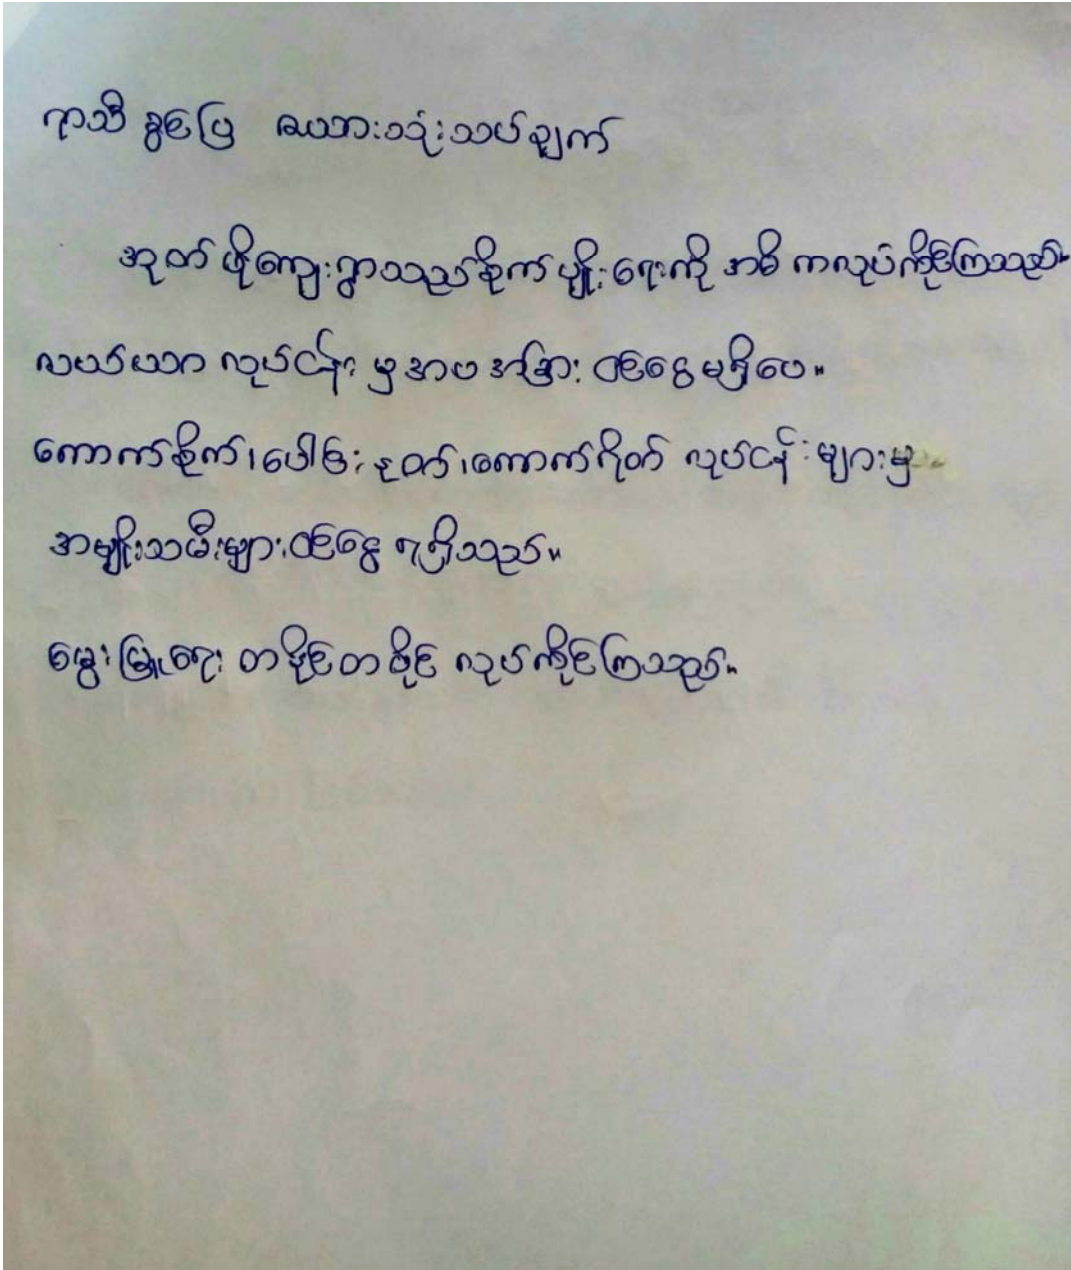 ရာသီ ခွင်ပြ ဇယားသုံးသပ်ချက်
အုတ် ဖိုကျေးရွာသည်စိုက် ပျိုးရေးကို အဓိ ကလုပ်ကိုင်ကြသည်။
လယ်ယာ လုပ်ငန်း မှ အပ အခြား ဝင်ငွေ မရှိပေ။
ကောက်စိုက်၊ ပေါင်း နုတ်၊ ကောက်ရိတ် လုပ်ငန်း များမှ
အမျိုးသမီးများ ဝင်ငွေ ရရှိသည်။
မွေး မြူရေး တနိုင်တပိုင် လုပ်ကိုင်ကြသည်။